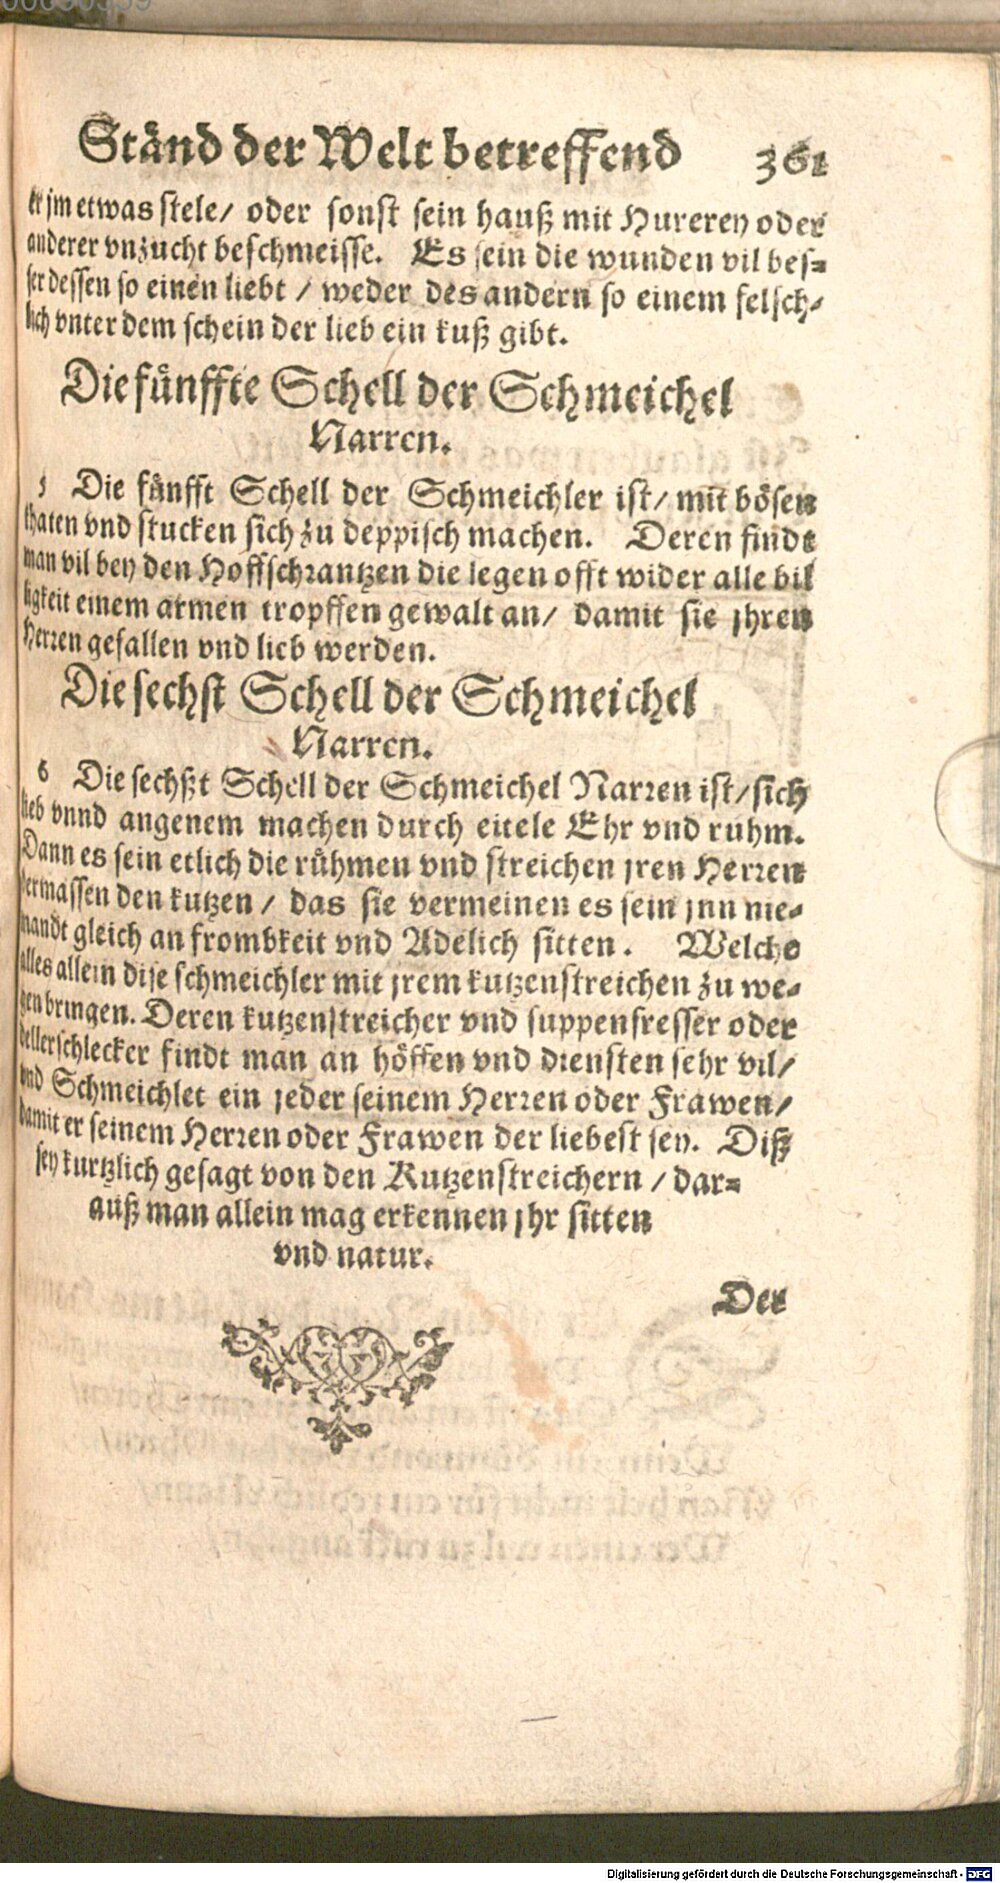 Ständ der Welt betreffend 361
er jm etwas stele/ oder sonst sein hauß mit Hurerey oder
anderer vnzucht beschmeisse. Es sein die wunden vil bes=
ser dessen so einen liebt / weder des andern so einem felsch=
lich vnter dem schein der lieb ein kuß gibt.
Die fünffte Schell der Schmeichel
Narren.
5 Die fünfft Schell der Schmeichler ist/ mit bösen
thaten vnd stucken sich zu deppisch machen. Deren findt
man vil bey den Hoffschrantzen die legen offt wider alle bil
ligkeit einem armen tropffen gewalt an/ damit sie jhren
Herren gefallen vnd lieb werden.
Die sechst Schell der Schmeichel
Narren.
6 Die sechßt Schell der Schmeichel Narren ist/ sich
lieb vnnd angenem machen durch eitele Ehr vnd ruhm.
Dann es sein etlich die rühmen vnd streichen jren Herren
dermassen den kutzen / das sie vermeinen es sein jnn nie=
mandt gleich an frombkeit vnd Adelich sitten. Welche
alles allein dise schmeichler mit jrem kutzenstreichen zu we=
gen bringen. Deren kutzenstreicher vnd suppenfresser oder
dellerschlecker findt man an höffen vnd diensten sehr vil/
vnd Schmeichlet ein jeder seinem Herren oder Frawen/
damit er seinem Herren oder Frawen der liebest sey. Diß
sey kurtzlich gesagt von den Kutzenstreichern / dar=
auß man allein mag erkennen jhr sitten
vnd natur.
Der
Digitalisierung gefördert durch die Deutsche Forschungsgemeinschaft - DFG